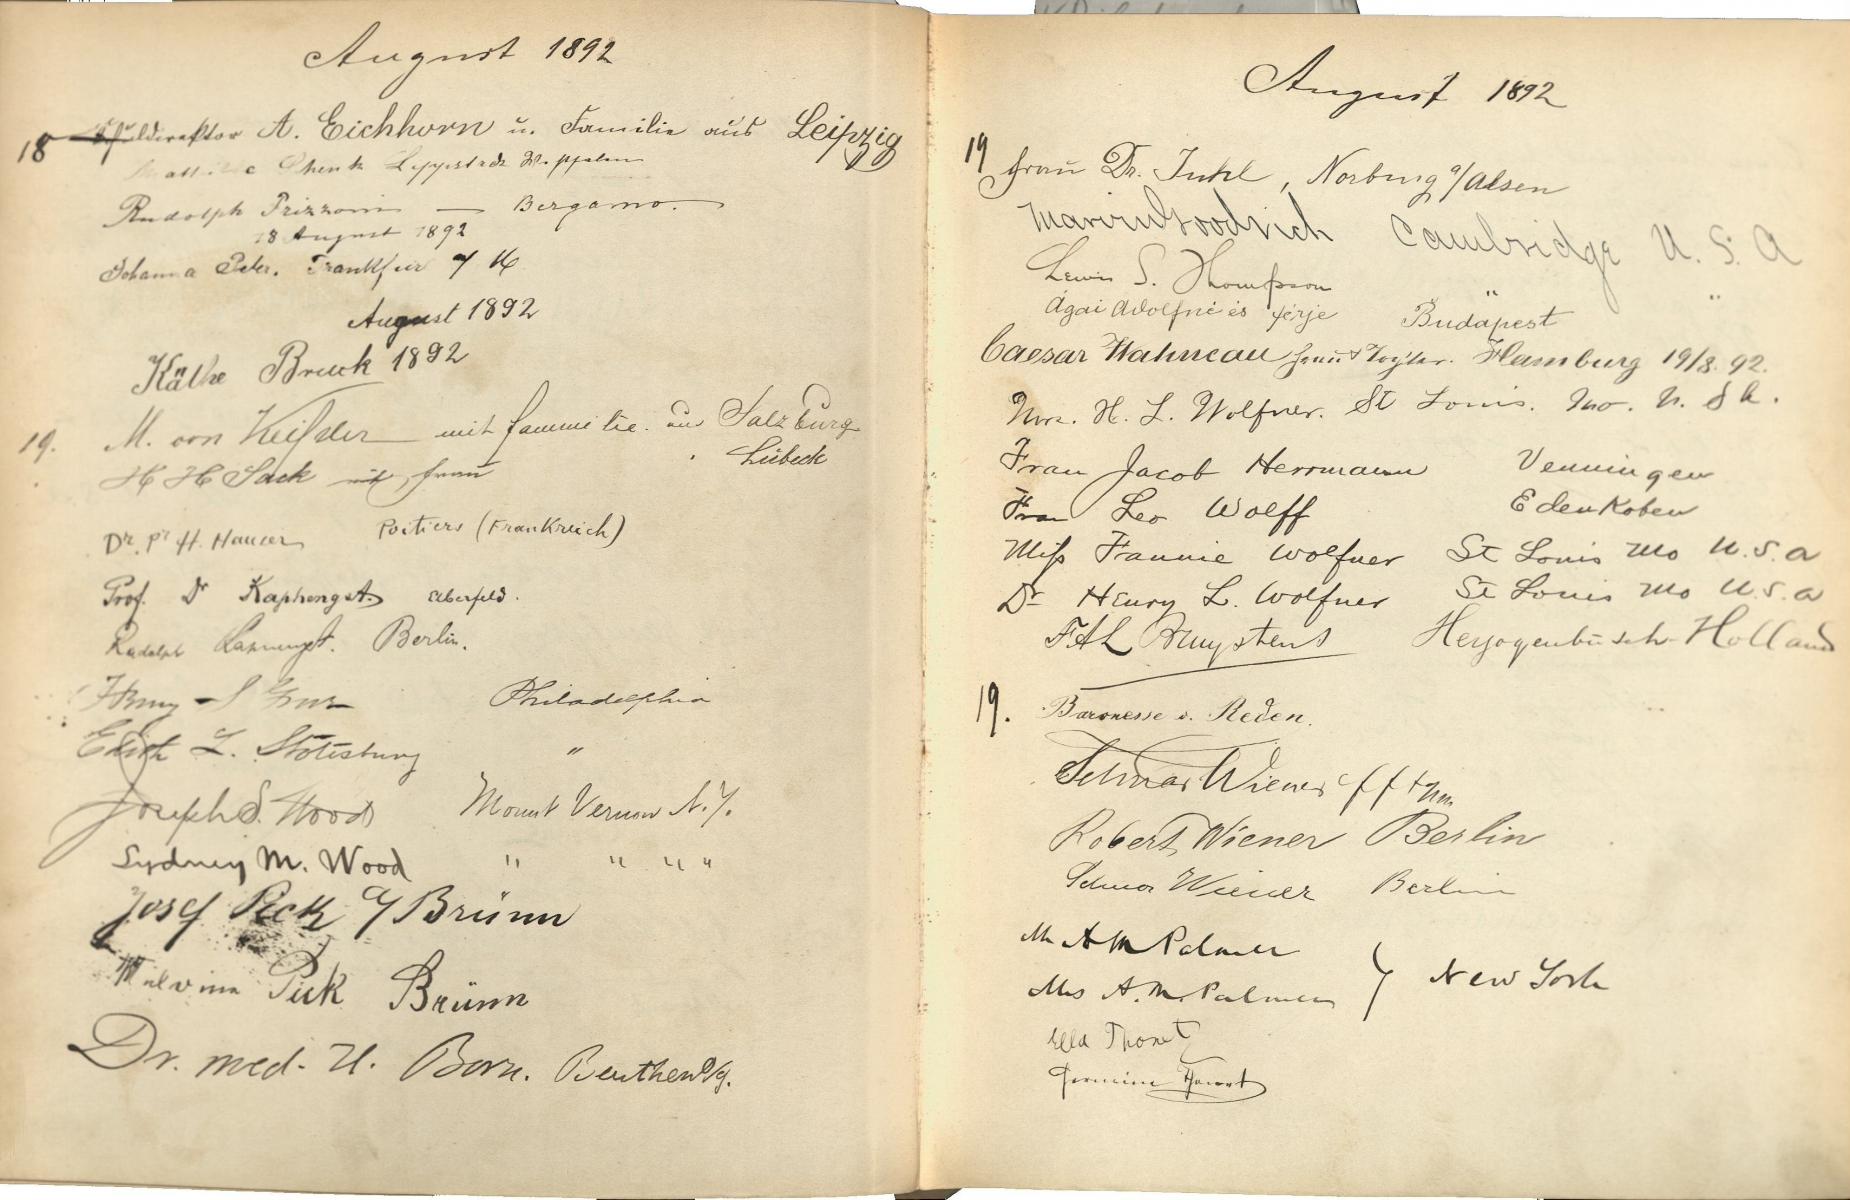 August 1892
18 Schuldirektor A. Eichhorn u. Familie aus Leipzig
Schenk Lippstadt
Rudolph Frizzoni — Bergamo.
18 August 1892
Johanna Peter. Frankfurt a/M
August 1892
Käthe Bruck 1892
19. M. von Keißler mit Fammilie aus Salzburg
H H Sack mit Frau Lübeck
Dr. H. Hauser Poitiers (Frankreich)
Prof. Dr Kaphengst Elberfeld.
Rudolph Berlin.
Philadelphia
Edith L. Stotesbury "
Joseph S. Wood Mount Vernon N.Y.
Sydney M. Wood " " " "
Josef Pick a/ Brünn
Malvina Pick Brünn
Dr. med. H. Born. Beuthen O/S.
August 1892
19 Frau Dr. Juhl, Norburg a/Alsen
Marvin Goodrich Cambridge U. S. A
Lewis S. Thompson " "
Ágai Adolfné és férje Budapest
Caesar Wahncau Frau & Tochter. Hamburg 19/8. 92.
Mrs. H. L. Wolfner. St Louis. Mo. U. S A.
Frau Jacob Herrmann Venningen
Frau Leo Wolff Edenkoben
Miss Fannie Wolfner St Louis Mo U.S.A
Dr Henry L. Wolfner St Louis Mo U.S.A
Herzogenbusch Holland
19. Baronesse v. Reden.
Selmar Wiener
Robert Wiener Berlin
Selma Wiener Berlin
Mr A M Palmer
Mrs A. M. Palmer } New York
Ella Thonet
Thonet